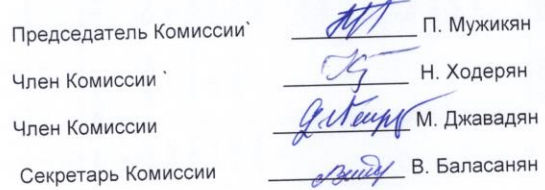 Председатель Комиссии` П. Мужикян
Член Комиссии ` Н. Ходерян
Член Комиссии М. Джавадян
Секретарь Комиссии В. Баласанян